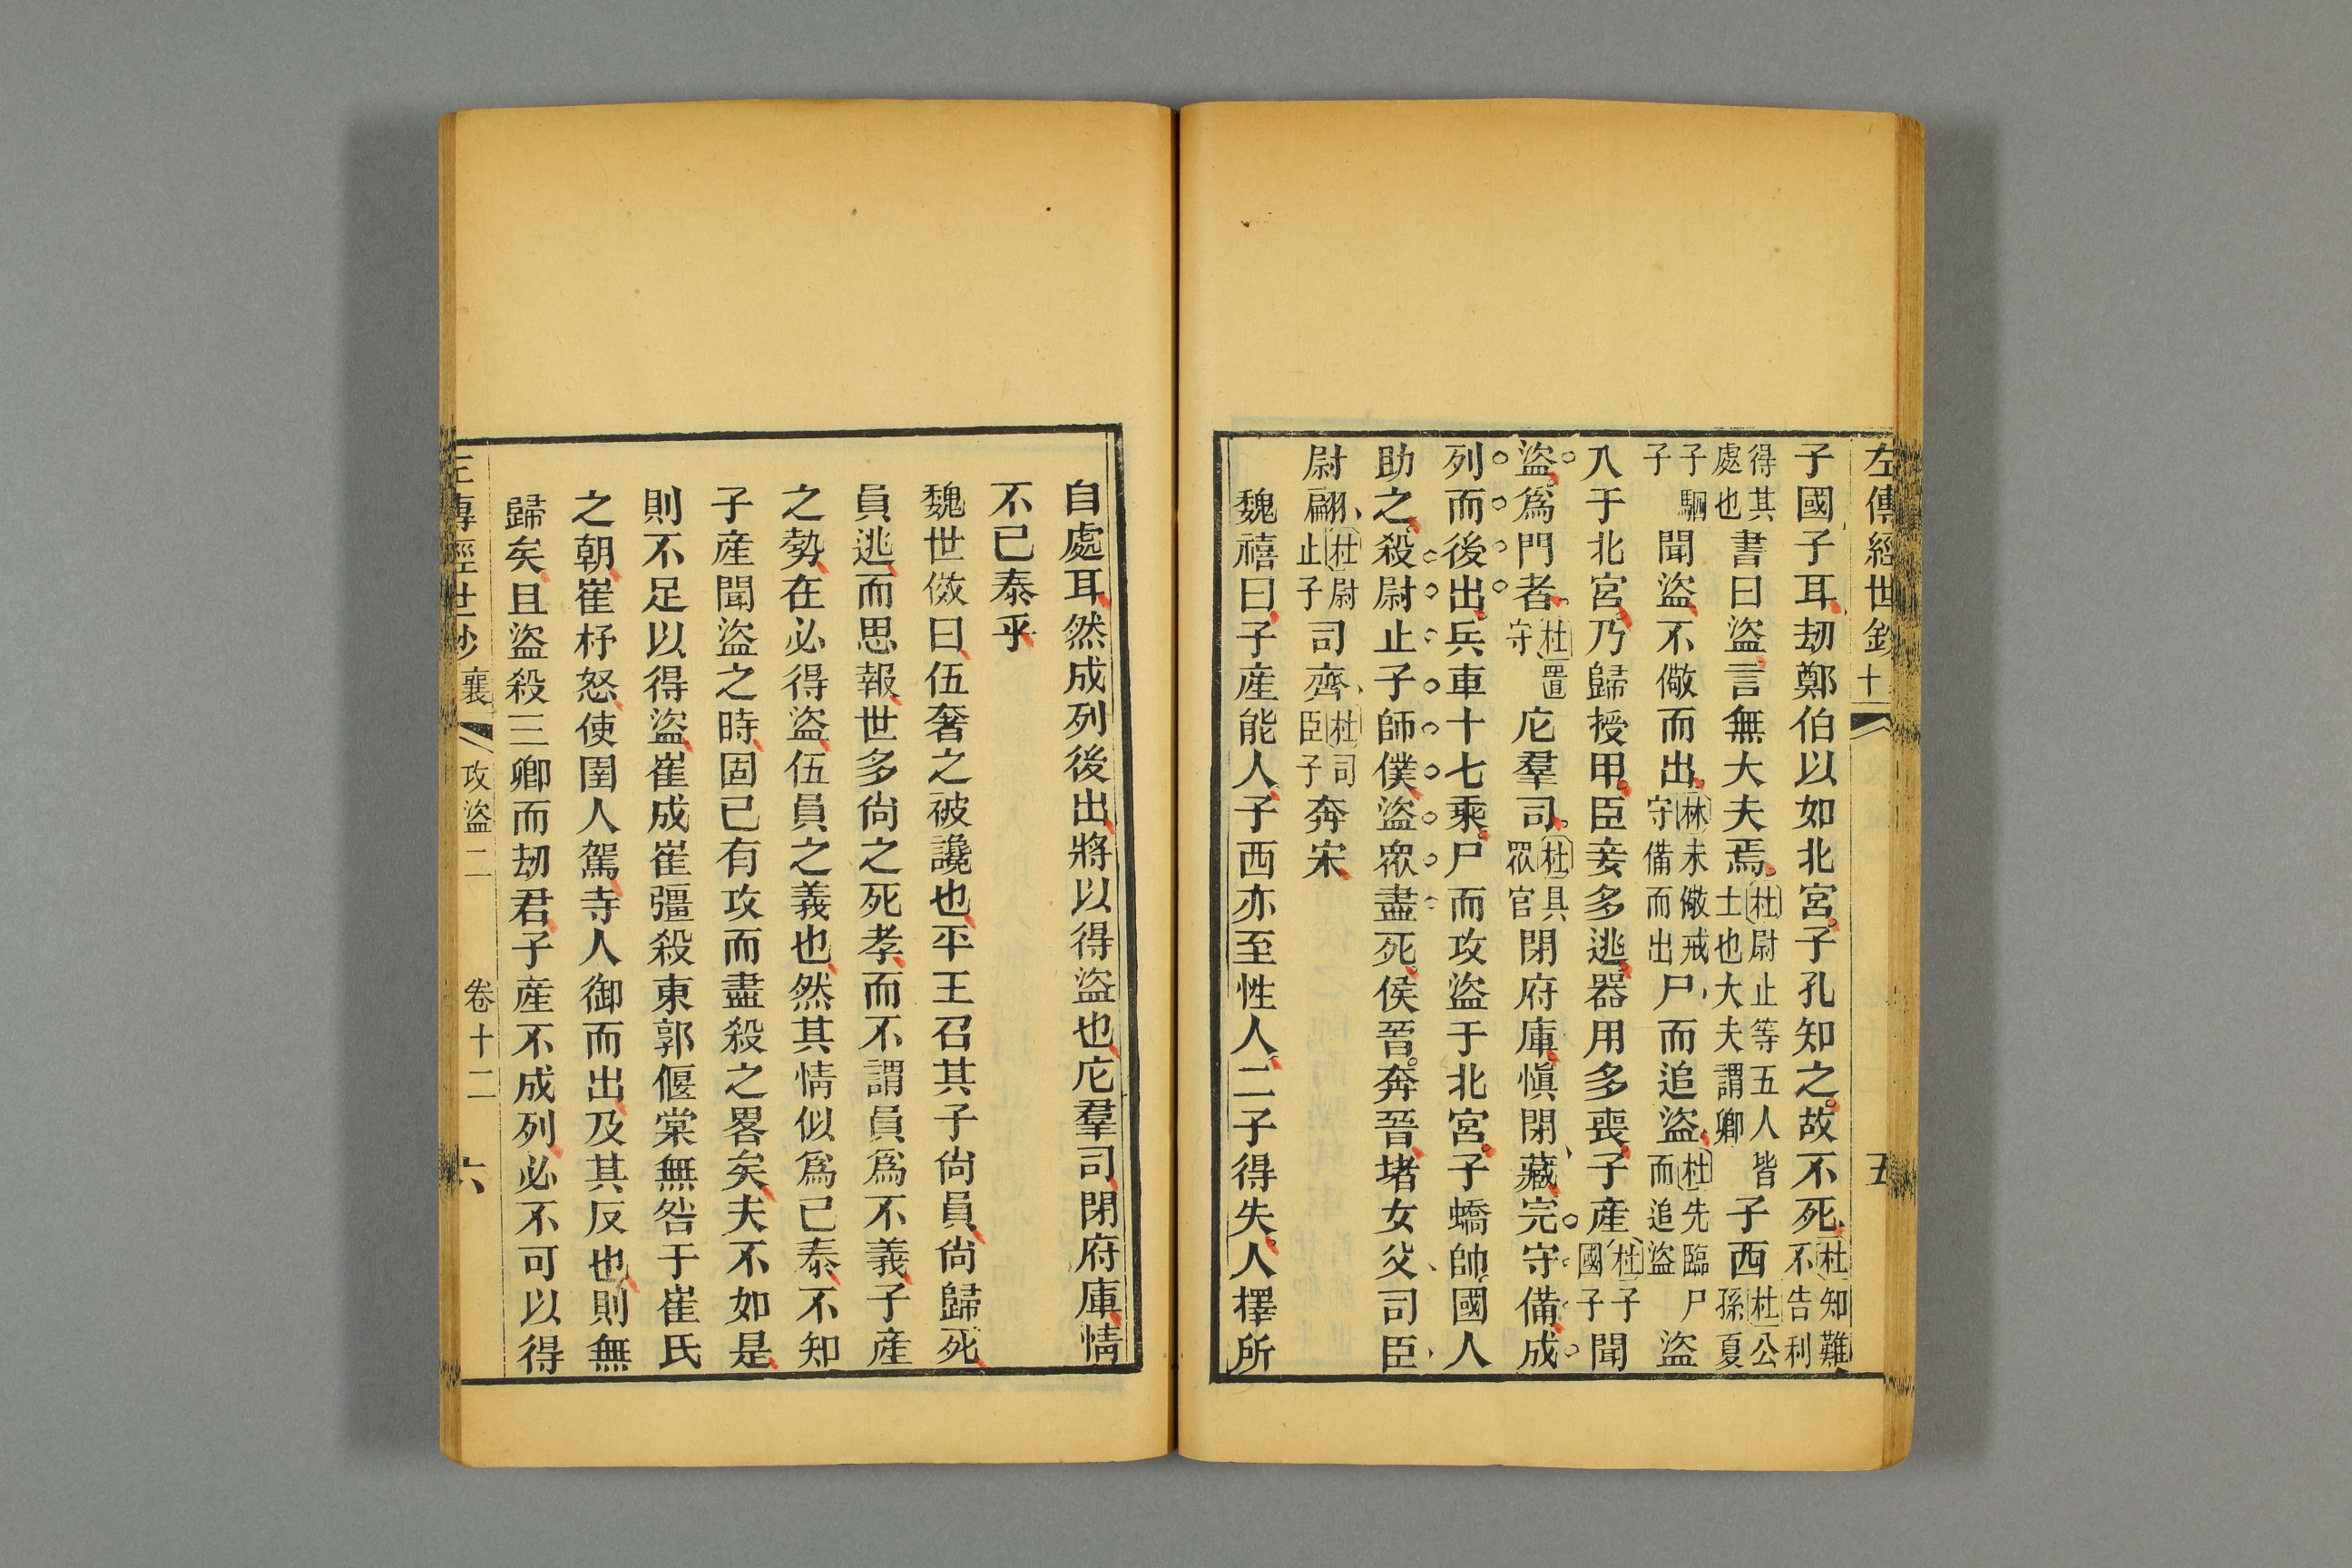 左傳經世鈔 十 五
子國子耳刼鄭伯以如北宮子孔知之故不死杜知難不告利
得其處也書曰盜言無大夫焉杜尉止等五人皆士也大夫謂卿子西杜公孫夏
子駟子聞盜不儆而出林未儆戒守備而出尸而追盜杜先臨尸而追盜盜
入于北宮乃歸授甲臣妾多逃器用多喪子產杜子國子聞
盜爲門者杜置守庀羣司杜具眾官閉府庫愼閉藏完守備成
列而後出兵車十七乘尸而攻盜于北宮子蟜帥國人
助之殺尉止子師僕盜眾盡死侯晉奔晉堵女父司臣
尉翩杜尉止子司齊杜司臣子奔宋
魏禧曰子產能人子西亦至性人二子得失人擇所
自處耳然成列後出將以得盜也庀羣司閉府庫情
不已泰乎
魏世傚曰伍奢之被讒也平王召其子尚員尚歸死
員逃而思報世多尚之死孝而不謂員爲不義子產
之勢在必得盜伍員之義也然其情似爲已泰不知
子產聞盜之時固已有攻而盡殺之畧矣夫不如是
則不足以得盜崔成崔彊殺東郭偃棠無咎于崔氏
之朝崔杼怒使圉人駕寺人御而出及其反也則無
歸矣且盜殺三卿而刼君子產不成列必不可以得
左傳經世鈔 襄 攻盜二 卷十二 六